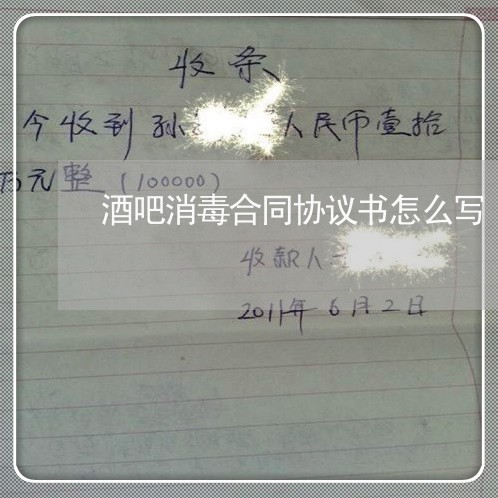 收条
今收到孙 人民币壹拾
万元整(100000)
酒吧消毒合同协议书怎么写
收款人
2011年6月2日